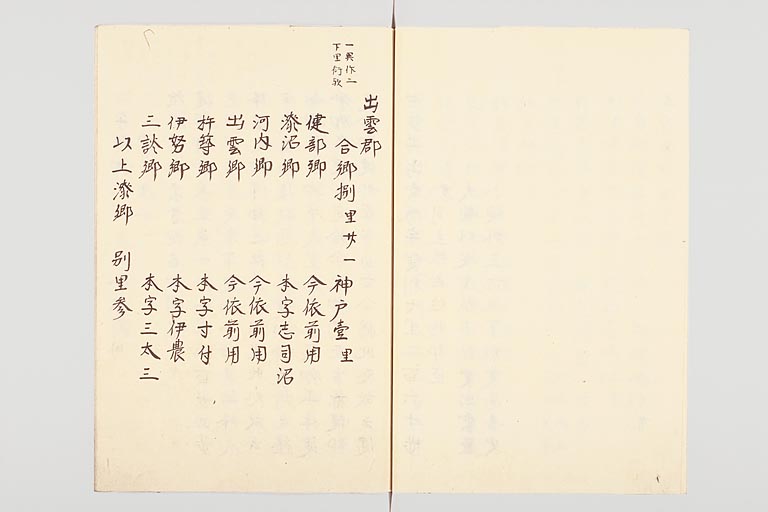 出雲郡
一異作二
下里行欤
合郷捌里廿一 神戸壹里
健部郷 今依前用
漆沼郷 本字志司沼
河内郷 今依前用
出雲郷 今依前用
杵築郷 本字寸付
伊努郷 本字伊農
三談郷 本字三太三
以上漆郷 別里参